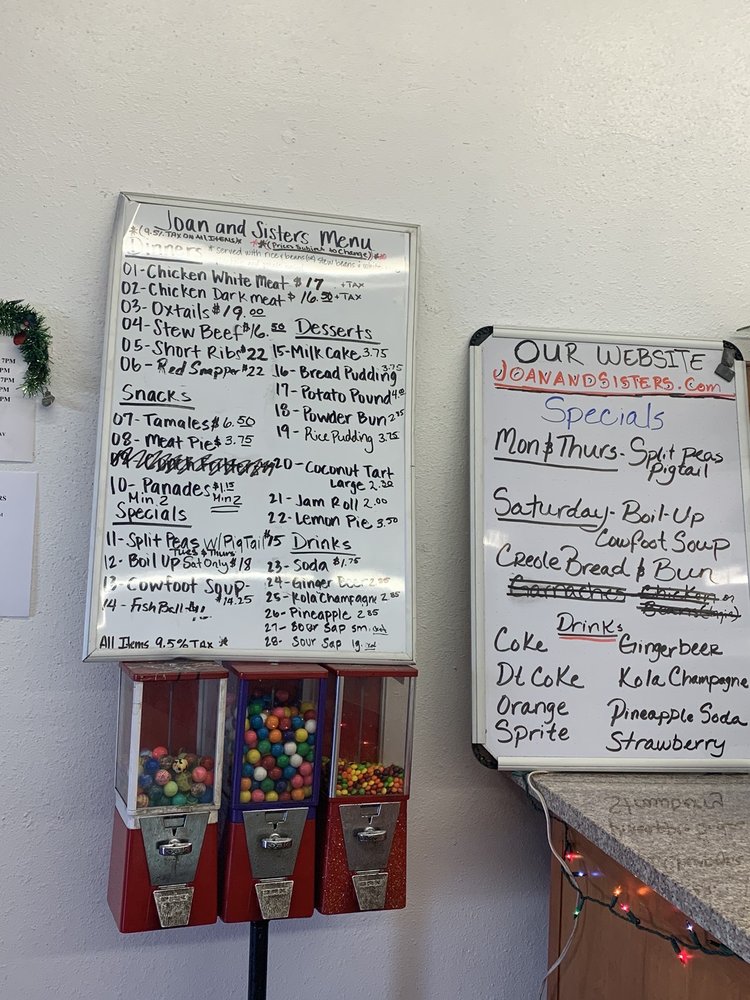 Joan and Sisters Menu
*(9.5% TAX ON All ITEMS)* *(Prices Subject to Change)*
Dinners * served with rice & beans(or) stew beans & white
01-Chicken White Meat $17 +TAX
02-Chicken Dark meat $16.50 +TAX
03-Oxtails $19.00
04-Stew Beef $16.50
05-Short Ribs $22
06-Red Snapper $22
Snacks
07-Tamales $6.50
08-Meat Pie $3.75
09-
10-Panades $1.15
Min. 2 Min 2
Specials
11-Split Peas W/PigTail $15
Tues & Thurs
12-Boil Up Sat Only $18
13-Cowfoot Soup- $14.25
14-Fish Ball-
All Items 9.5% TAX *
Desserts
15-Milk Cake 3.75
16-Bread Pudding 3.75
17-Potato Pound
18-Powder Bun
19-Rice Pudding 3.75
20-Coconut Tart
Large 2.30
21-Jam Roll 2.00
22-Lemon Pie 3.50
Drinks
23-Soda $1.75
24-Ginger Beer 2.85
25-Kola Champagne 2.85
26-Pineapple 2.85
27-Sour Sap sm.
28-Sour Sap lg.
OUR WEBSITE
JOANANDSISTERS.Com
Specials
Mon & Thurs-Split Peas
Pigtail
Saturday-Boil-Up
Cowfoot Soup
Creole Bread & Bun
Garnaches
Drinks
Coke Gingerbeer
Dt Coke Kola Champagne
Orange Pineapple Soda
Sprite Strawberry
7PM
PM
7PM
PM
PM